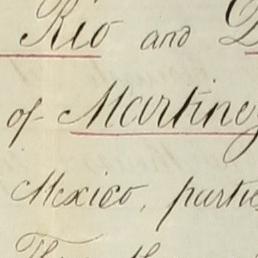 Rio and
of Martinez
Mexico, parties